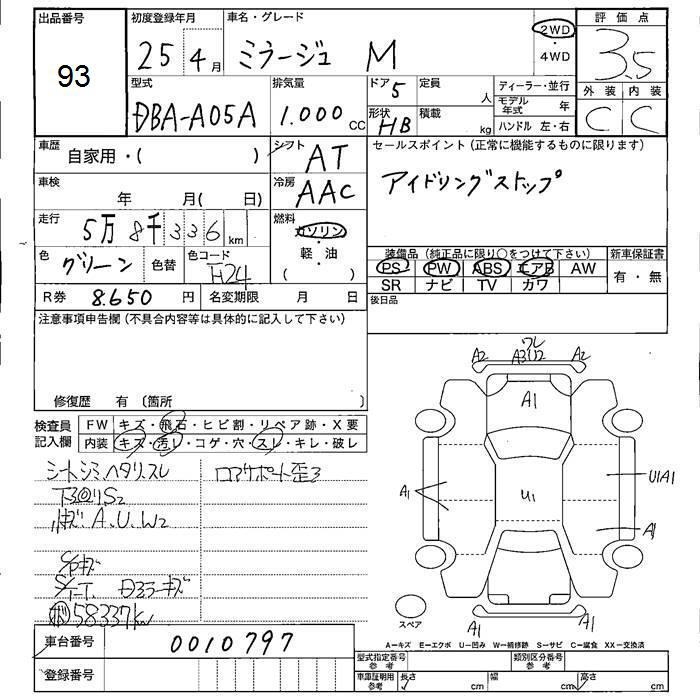 出品番号 初度登録年月 車名・グレード 評価点
93 25年4月 ミラージュ M 2WD 3.5
・4WD
型式 排気量 ドア 5 定員 人 ディーラー・並行 外装 内装
DBA-A05A 1.000cc 形状 HB 積載 kg モデル年式 年 C C
ハンドル 左・右
車歴 自家用・( ) シフト AT セールスポイント(正常に機能するものに限ります)
車検 年 月( 日) 冷房 AAC アイドリングストップ
走行 5万8千336km 燃料 ガソリン・軽・油( )
色 グリーン 色替 色コード H24 装備品(純正品に限り○をつけて下さい) 新車保証書
PS PW ABS エアB AW 有・無
SR ナビ TV カワ
R券 8.650円 名変期限 月 日 後日品
注意事項申告欄(不具合内容等は具体的に記入して下さい)
修復歴 有〔箇所 〕
検査員記入欄 FW キズ・飛石・ヒビ割・リペア跡・X要
内装 キズ・汚レ・コゲ・穴・スレ・キレ・破レ
シートシミ、ヘタリ、スレ ロアサポート歪ミ
下回りS2
A.U.W2
58337km
A2 ワレ A3U2 A2
A1
U1
A1
U1A1
A1
A1 A1
スペア
A=キズ E=エクボ U=凹み W=補修跡 S=サビ C=腐食 XX=交換済
車台番号 0010797 型式指定番号 参考 類別区分番号 参考
登録番号 車庫証明用 参考 長さ cm 幅 cm 高さ cm